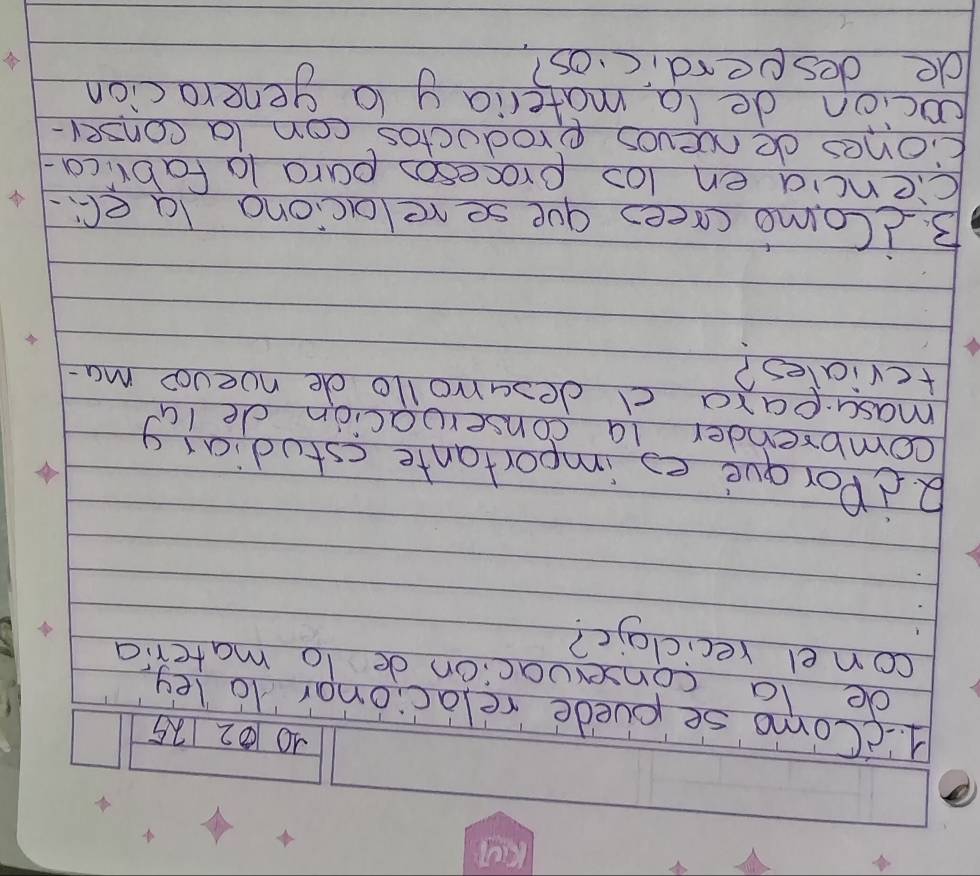 Kiut
10 02 25
1.- ¿Como se puede relacionar la ley
de la conservación de la materia
con el reciclaje?
2. ¿Por qué es importante estudiar y
comprender la conservación de la
masa para el desarrollo de nuevos ma-
teriales?
3. ¿Como crees que se relaciona la efi-
ciencia en los procesos para la fabrica-
ciones de nuevos productos con la conser-
vacion de la materia y la generación
de desperdicios?